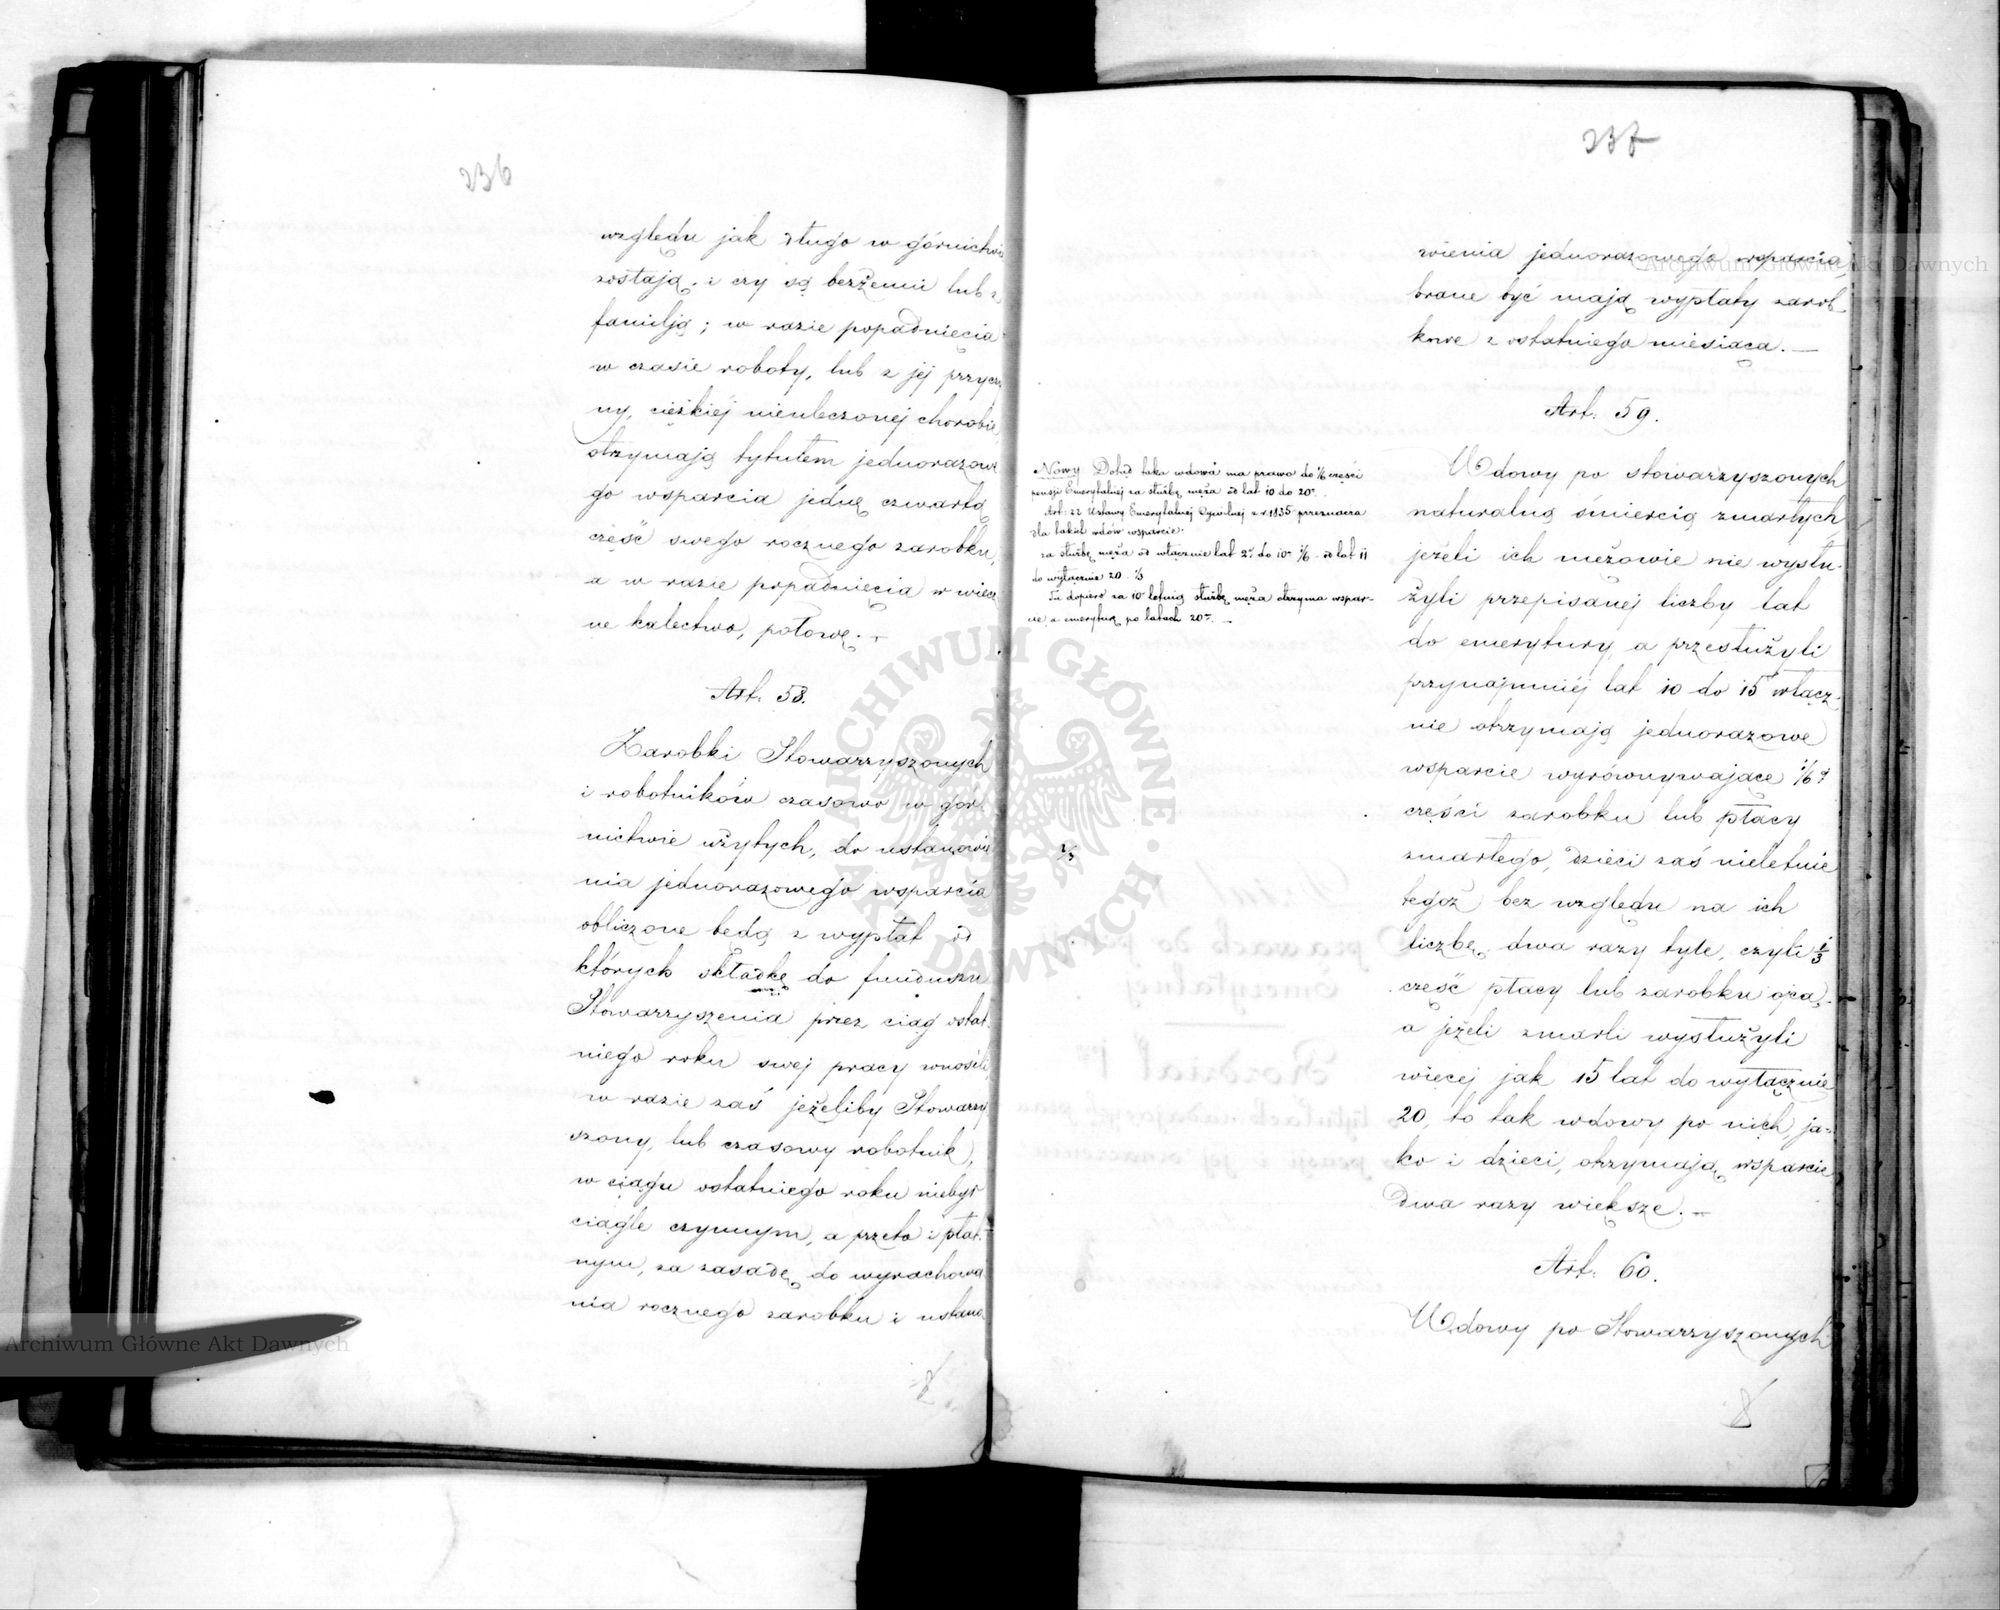 236
względu jak długo w górnictwie
zostają, i czy są bezżenni lub z
familją; w razie popadnięcia
w czasie roboty, lub z jej przyczy
ny, ciężkiéj nieuleczonej chorobie,
otrzymają tytułem jednorazowe
go wsparcia jednę czwartą
część swego rocznego zarobku,
a w razie popadnięcia w wiecz
ne kalectwo, połowę. —
Art: 58.
Zarobki Stowarzyszonych
i robotników czasowo w gór
nictwie użytych, do ustanowie
nia jednorazowego wsparcia
obliczone będą z wypłat od
których składkę do funduszu
Stowarzyszenia przez ciąg ostat
niego roku swej pracy wnosili,
w razie zaś jeżeliby Stowarzy
szony, lub czasowy robotnik,
w ciągu ostatniego roku niebył
ciągle czynnym, a przeto i płat
nym, za zasadę do wyrachowa
nia rocznego zarobku i ustano
8
237
wienia jednorazowego wsparcia,
brane być mają wypłaty zarob
kowe z ostatniego miesiąca. —
Art: 59.
Wdowy po stowarzyszonych
naturalną śmiercią zmarłych,
jeżeli ich mężowie nie wysłu
żyli przepisanej liczby lat
do emerytury, a przesłużyli
przynajmniéj lat 10 do 15 włącz
nie otrzymają jednorazowe
wsparcie wyrównywające 1/6
części zarobku lub płacy
zmarłego, dzieci zaś nieletnie
tegoż bez względu na ich
liczbę, dwa razy tyle, czyli 1/3
część płacy lub zarobku ojca,
a jeżeli zmarli wysłużyli
więcej jak 15 lat do wyłącznie
20, to tak wdowy po nich, ja-
ko i dzieci, otrzymają wsparcie
dwa razy większe. —
Art: 60.
Wdowy po Stowarzyszonych
Nowy Dotąd taka wdowa ma prawo do 1/6 części
pensji Emerytalnej za służbę męża od lat 10 do 20.
Art: 22 Ustawy Emerytalnej Cywilnej z r. 1835 przeznacza
dla takich wdów wsparcie:
za służbę męża od włącznie lat 2 do 10 1/6 - od lat 11
do wyłącznie 20 - 1/3
Tu dopiero za 10 letnią służbę męża otrzyma wspar-
cie, a emeryturę po latach 20. —
1/3
8
Archiwum Główne Akt Dawnych
Archiwum Główne Akt Dawnych
ARCHIWUM GŁÓWNE AKT DAWNYCH